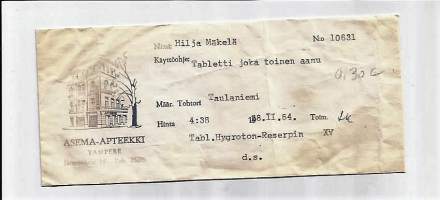 Nimi Hilja Mäkelä No 10631
Käyttöohje: Tabletti joka toinen aamu
0,30 c
Määr. Tohtori Taulaniemi
Hinta 4:38 18.II.64. Toim.
Tabl.Hygroton-Reserpin XV
d.s.
ASEMA-APTEEKKI
TAMPERE